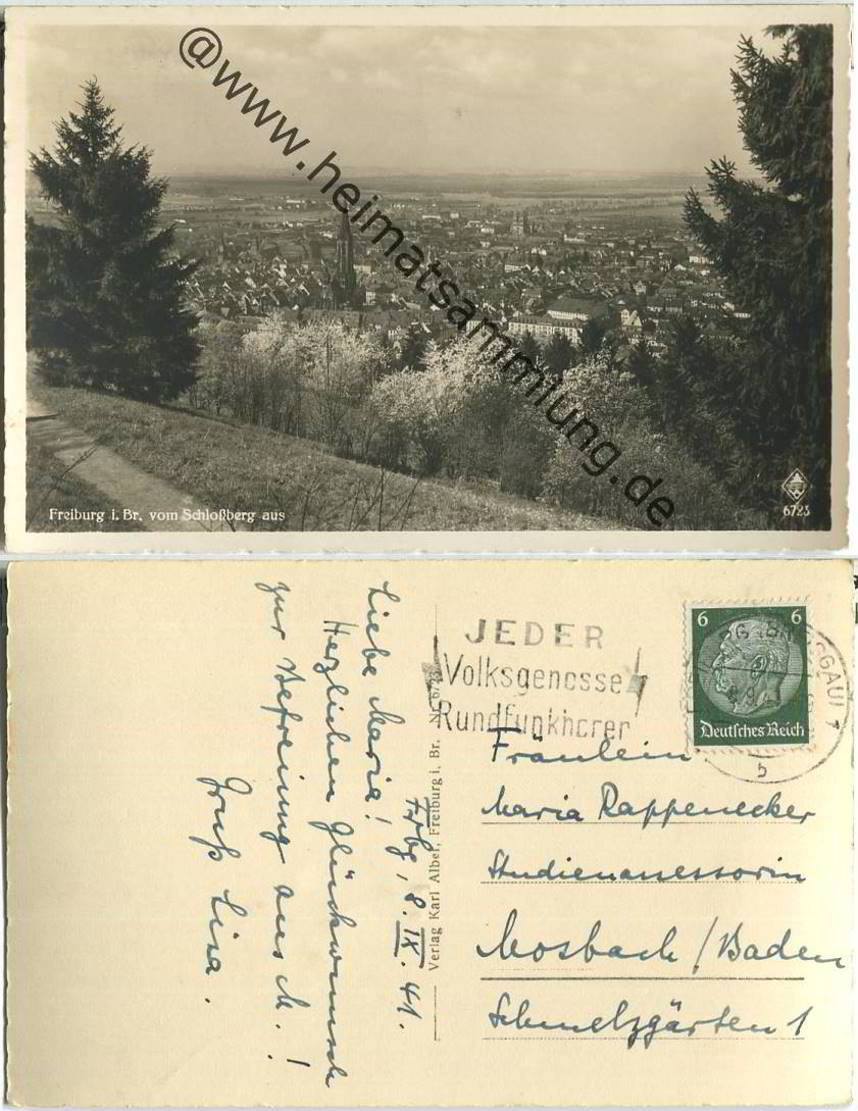 @www.heimatsammlung.de
Freiburg i. Br. vom Schloßberg aus
6723
JEDER
Volksgenosse
Rundfunkhörer
6 6
Deutsches Reich
b
Frbg, 8. IX. 41.
Liebe Maria!
Herzlichen Glückwunsch
zur Befreiung aus M.!
Gruß Lisa.
Verlag Karl Alber, Freiburg i. Br. Nr. 6723
Fräulein
Maria Rappenecker
Studienassessorin
Mosbach / Baden
Schmelzgärten 1